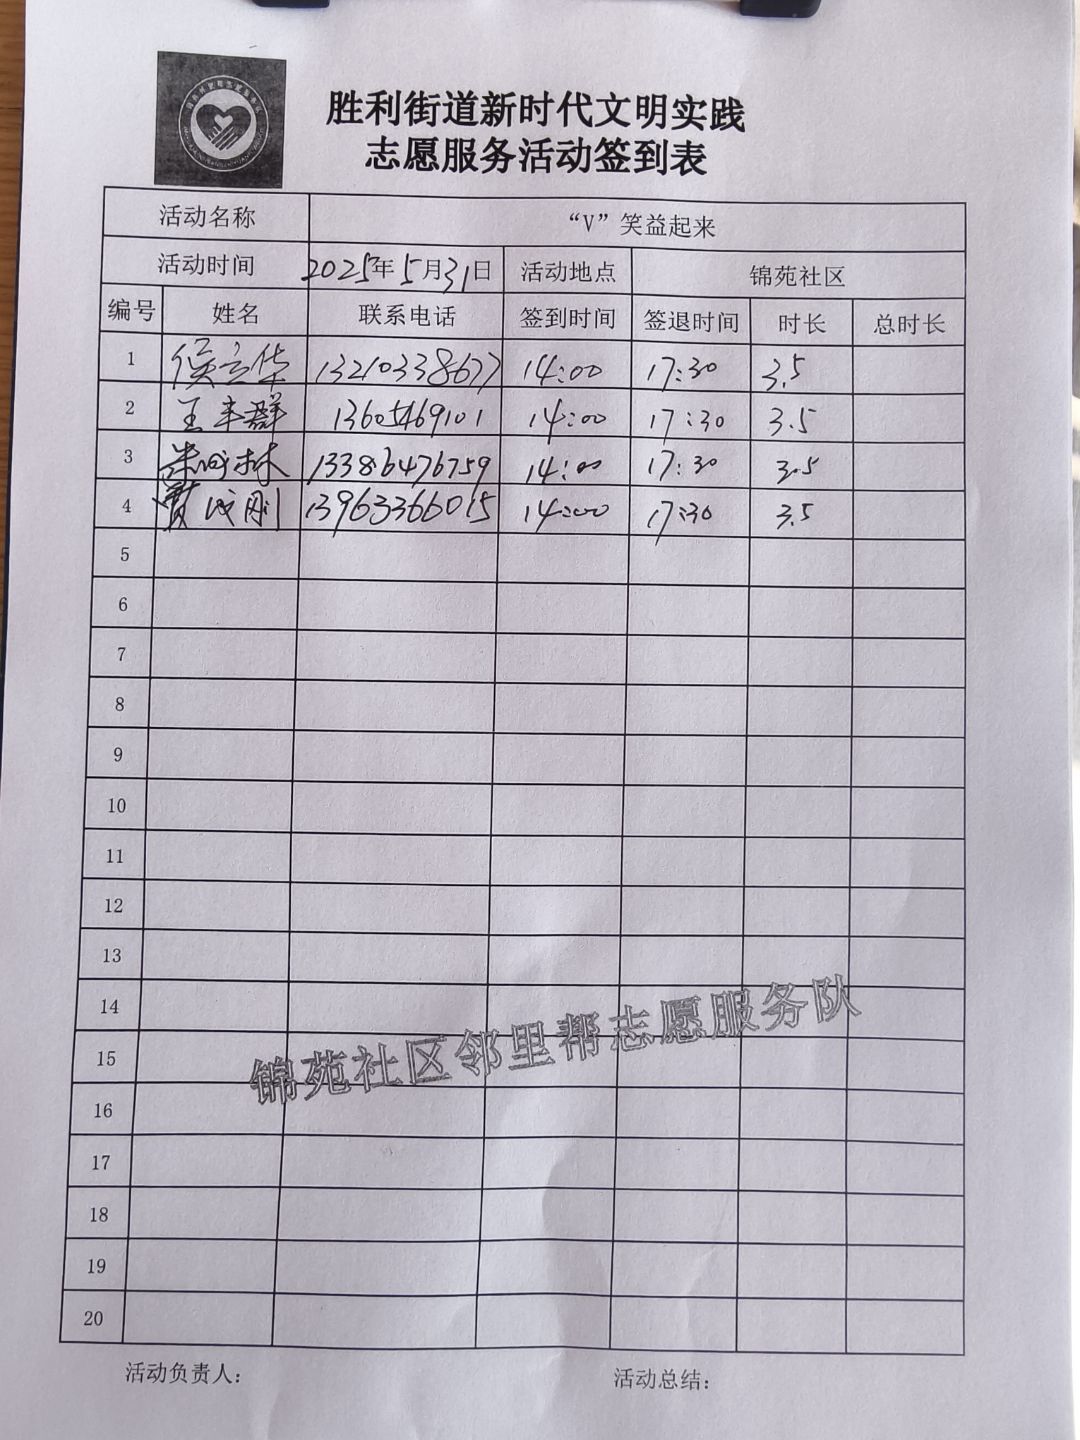 胜利街道新时代文明实践
志愿服务活动签到表
活动名称 “V”笑益起来
活动时间 2025年5月31日 活动地点 锦苑社区
编号 姓名 联系电话 签到时间 签退时间 时长 总时长
1 侯立华 13210338677 14:00 17:30 3.5
2 王丰群 13605469101 14:00 17:30 3.5
3 林 13386476759 14:00 17:30 3.5
4 贾成刚 13963366015 14:00 17:30 3.5
5
6
7
8
9
10
11
12
13
14
15
16
17
18
19
20
锦苑社区邻里帮志愿服务队
活动负责人： 活动总结：